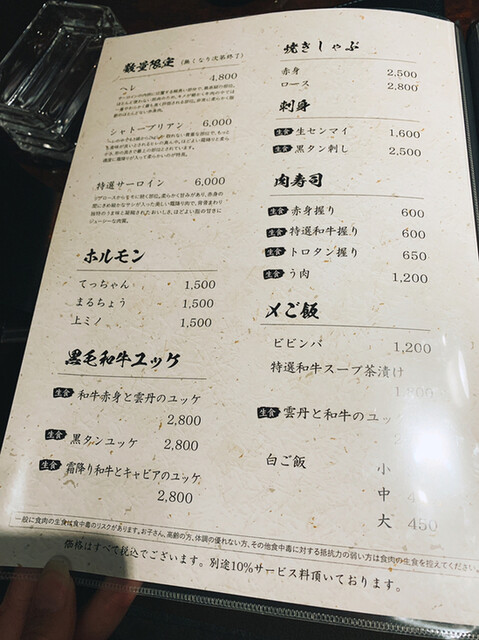 数量限定 (無くなり次第終了)
ヘレ 4,800
シャトーブリアン 6,000
特選サーロイン 6,000
ホルモン
てっちゃん 1,500
まるちょう 1,500
上ミノ 1,500
黒毛和牛ユッケ
生食 和牛赤身と雲丹のユッケ
2,800
生食 黒タンユッケ 2,800
生食 霜降り和牛とキャビアのユッケ
2,800
焼きしゃぶ
赤身 2,500
ロース 2,800
刺身
生食 生センマイ 1,600
生食 黒タン刺し 2,500
肉寿司
生食 赤身握り 600
生食 特選和牛握り 600
生食 トロタン握り 650
生食 う肉 1,200
〆ご飯
ビビンバ 1,200
特選和牛スープ茶漬け
1,800
生食 雲丹と和牛のユッ
白ご飯 小
中
大 450
一般に食肉の生食は食中毒のリスクがあります。お子さん、高齢の方、体調の優れない方、その他食中毒に対する抵抗力の弱い方は食肉の生食を控えてください。
価格はすべて税込でございます。別途10%サービス料頂いております。